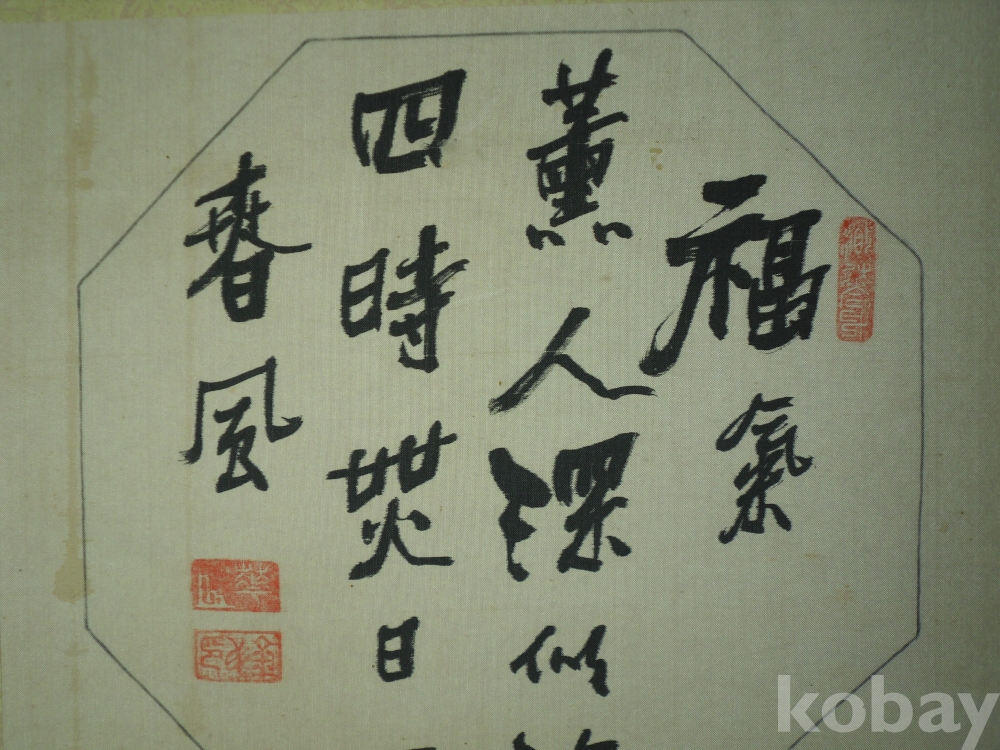 福氣
薰人深似
四時無日
春風
kobay